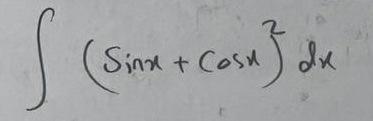 ∫ (Sinx + Cosx)² dx